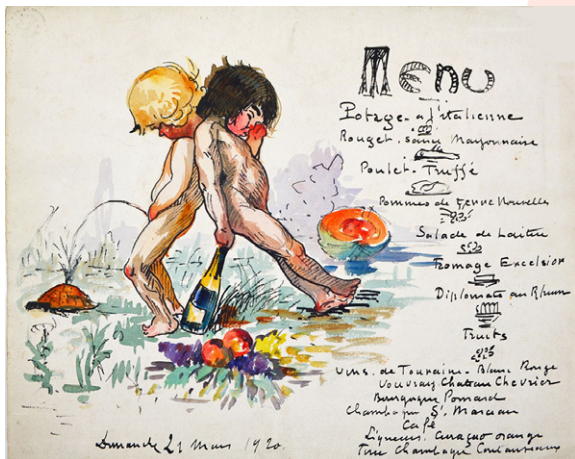 Menu
Potage à l'italienne
Rouget sauce Mayonnaise
Poulet Truffé
Pommes de terre Nouvelles
Salade de Laitue
Fromage Excelsior
Diplomate au Rhum
Fruits
Vins de Touraine - Blanc Rouge
Vouvray Chateau Chevrier
Bourgogne Pomard
Champagne St. Marceau
Café
Liqueurs Curaçao orange
Fine Champagne
Dimanche 21 Mars 1920